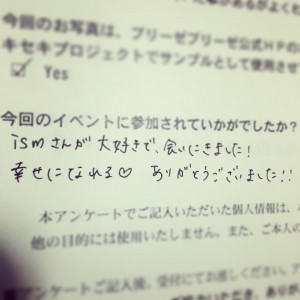 今回のお写真は、ブリーゼブリーゼ公式HPの
キセキプロジェクトでサンプルとして使用させ
☑ Yes
今回のイベントに参加されていかがでしたか?
ismさんが大好きで、会いにきました!
幸せになれる♡ ありがとうございました!!
本アンケートでご記入いただいた個人情報は、本
他の目的には使用いたしません。また、ご本人の
アンケートご記入後、受付にてお渡しください。ア